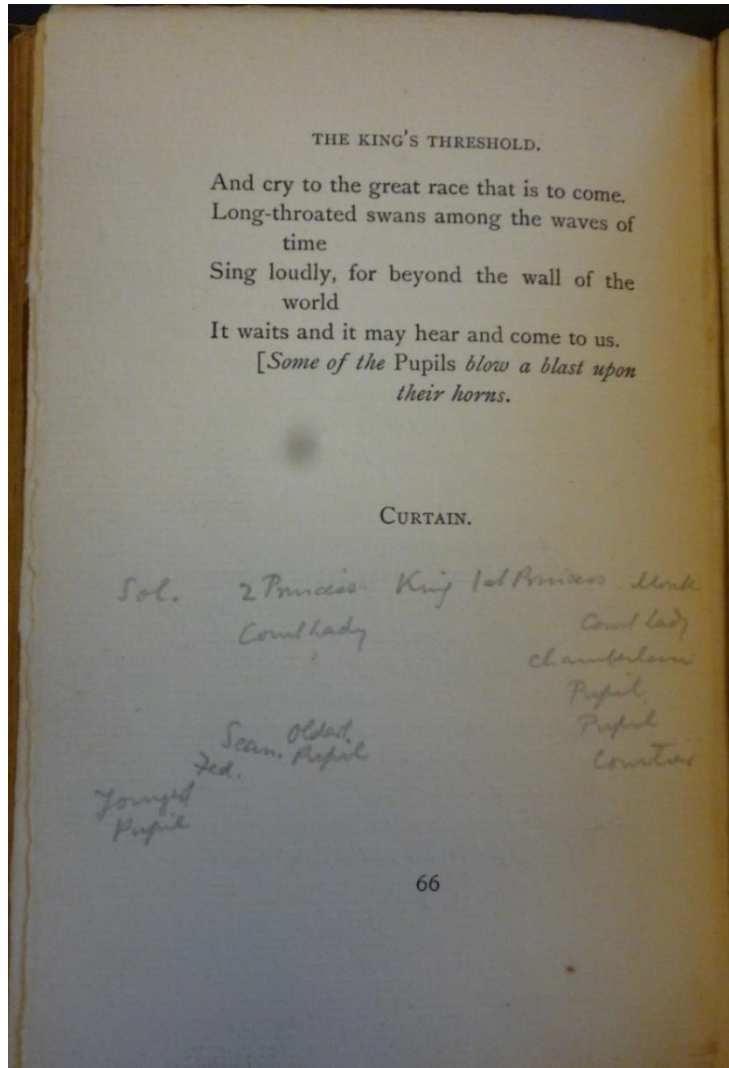 THE KING'S THRESHOLD.
And cry to the great race that is to come.
Long-throated swans among the waves of
time
Sing loudly, for beyond the wall of the
world
It waits and it may hear and come to us.
[Some of the Pupils blow a blast upon
their horns.
CURTAIN.
Sol. 2 Princess King 1st Princess Monk
Court Lady Court Lady
Chamberlain
Pupil
Pupil
Courtier
Sean. Oldest
Pupil
Fed.
Youngest
Pupil
66